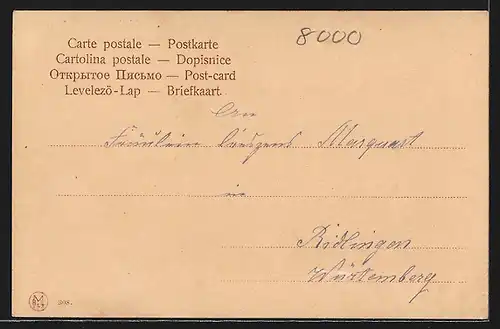 8000
Carte postale — Postkarte
Cartolina postale — Dopisnice
Открытое Письмо — Post-card
Levelező-Lap — Briefkaart
An
Fräulein Marquart
in
Ridlingen
Württemberg
398.